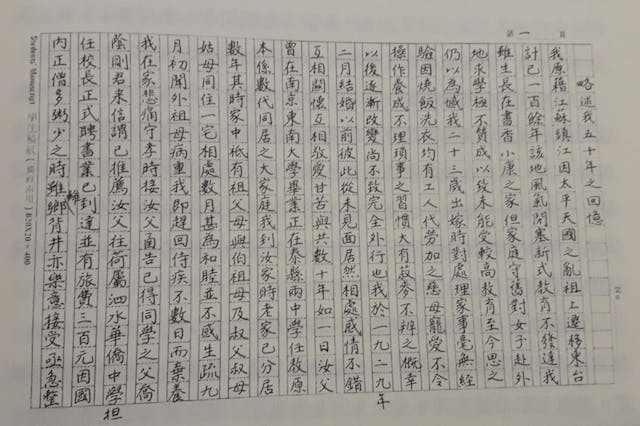 第一頁
2。
略述我五十年之回憶
我原籍江蘇鎮江因太平天國之亂祖上遷移東台
計已一百餘年該地風氣閉塞新式教育不發達我
雖生長在書香小康之家但家庭守舊對女子赴外
地求學極不贊成以致未能受較高教育至今思之
仍以為憾我二十三歲出嫁時對處理家事毫無經
驗因燒飯洗衣均有工人代勞加之慈母寵愛不令
操作養成不理瑣事之習慣大有菽麥不辨之慨幸
以後逐漸改變尚不致完全外行也我於一九二九年
二月結婚以前彼此從未見面居然相處感情不錯
互相關懷互相敬愛甘苦與共數十年如一日汝父
曾在南京東南大學畢業正在泰縣兩中學任教原
本係數代同居之大家庭我到汝家時老家已分居
數年其時家中祇有祖父母與伯祖母及叔父叔母
姑母同住一宅相處數月甚為和睦並不感生疏九
月初聞外祖母病重我即趕回侍疾不數日而棄養
我在家悲痛守孝時接汝父函告已得同學之父僑
陰剛君來信謂已推薦汝父往荷屬泗水華僑中學担
任校長正式聘書業已到達並有旅費三百元因國
內正僧多粥少之時雖離鄉背井亦樂意接受亟急整
Students' Manuscript 學生稿紙
20X20=400